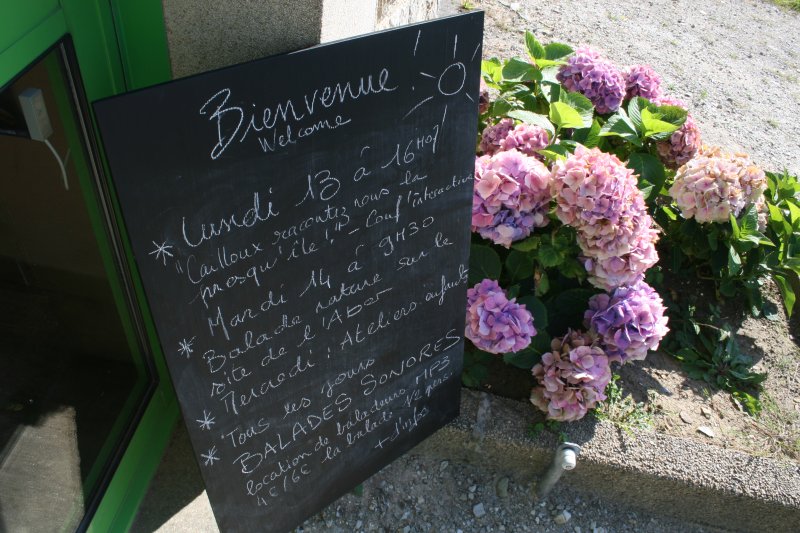 Bienvenue!
Welcome
* Lundi 13 à 16H00!
"Cailloux racontez nous la
presqu'île!" - Conf' interactive
* Mardi 14 à 9H30
Balade nature sur le
site de l'Aber
* Mercredi: Ateliers
* Tous les jours
BALADES SONORES
location de baladeurs MP3
4€/6€ la balade 12 pers
+ d'infos